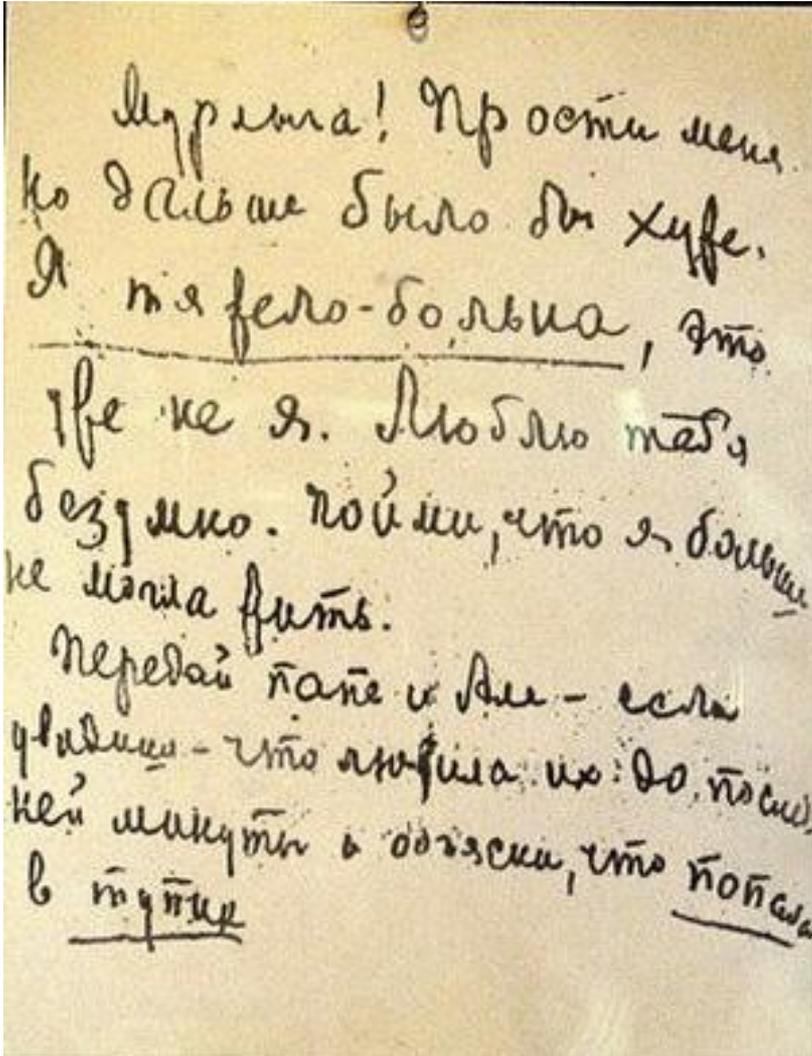 Мурлыга! Прости меня
но дальше было бы хуже.
Я тяжело-больна, это
уже не я. Люблю тебя
безумно. Пойми, что я больше
не могла жить.
Передай папе и Але – если
увидишь – что любила их до послед
ней минуты и объясни, что попала
в тупик